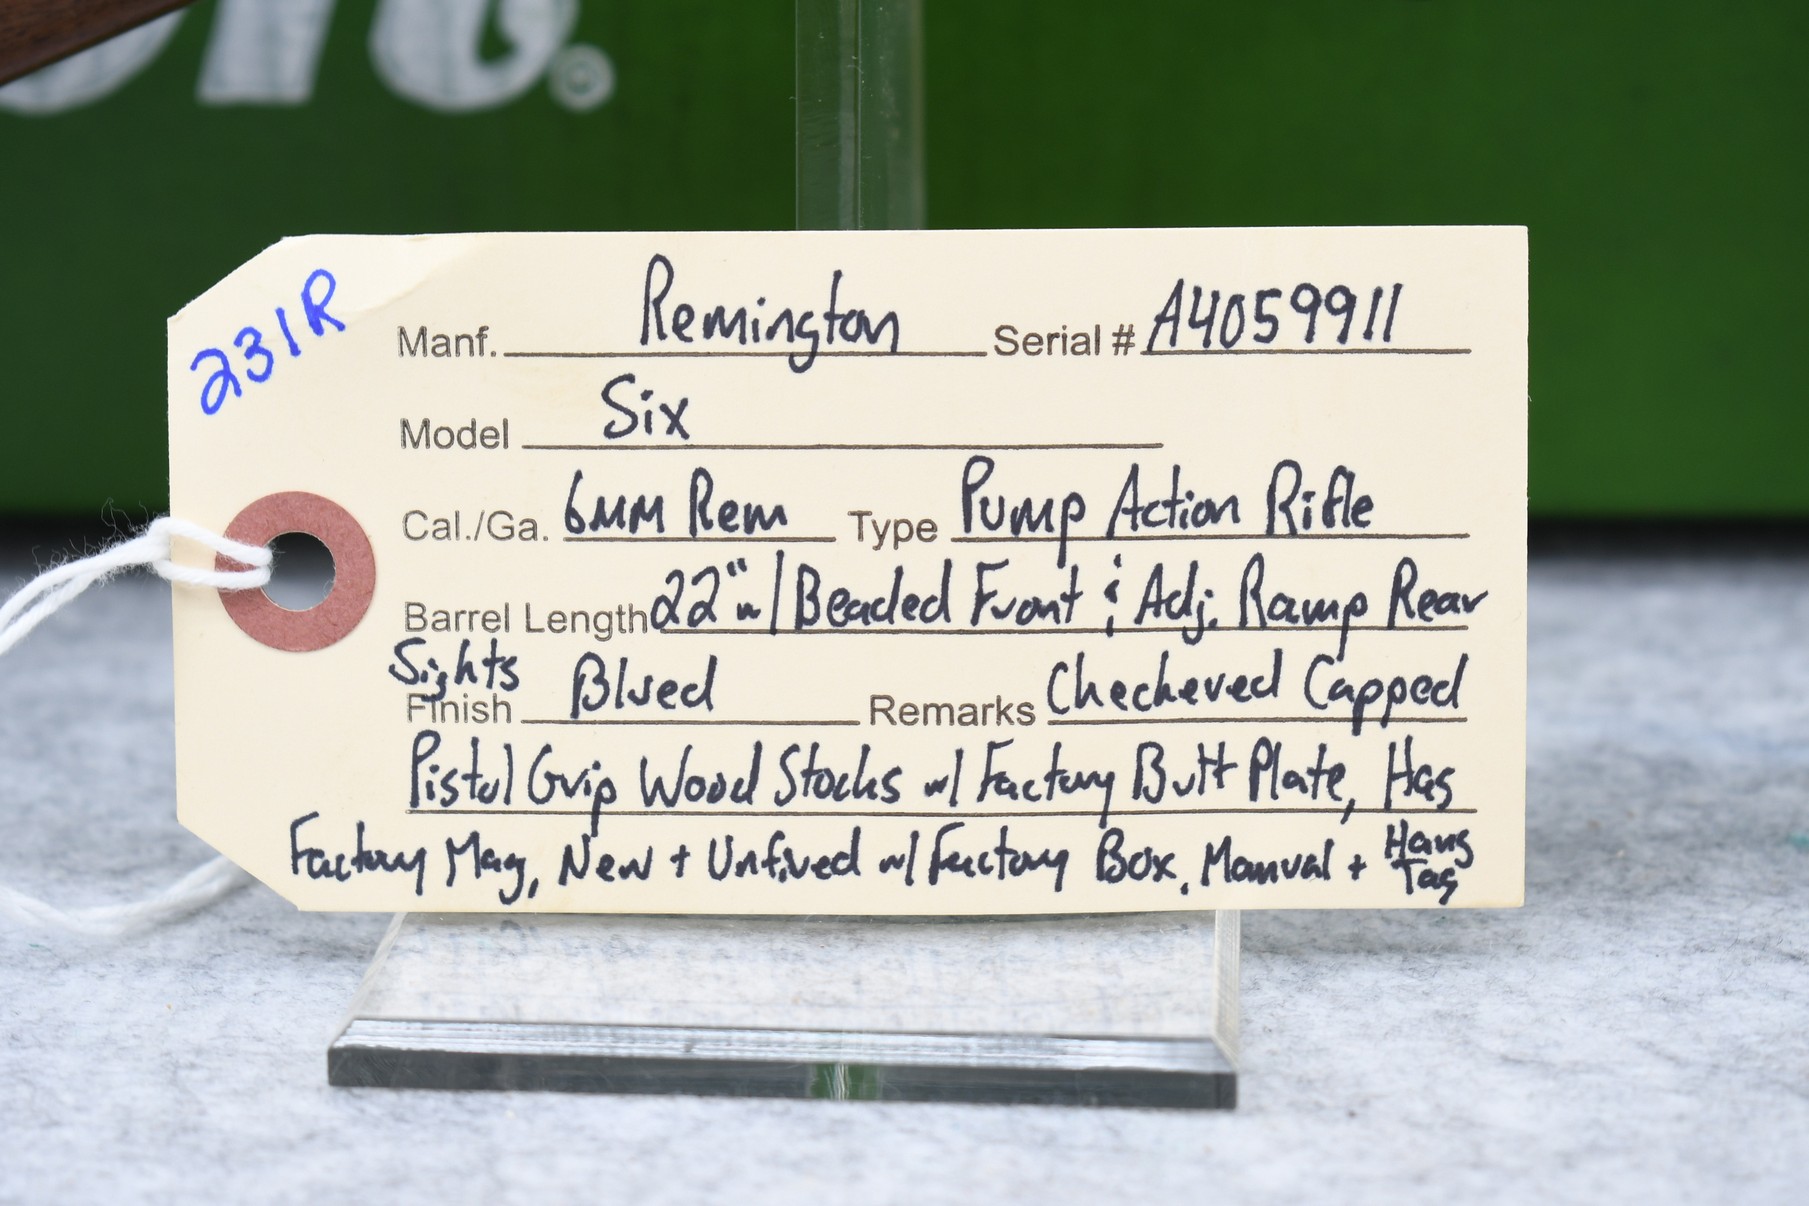 231R
Manf. Remington Serial # A4059911
Model Six
Cal./Ga. 6MM Rem Type Pump Action Rifle
Barrel Length 22" w/ Beaded Front & Adj. Ramp Rear
Sights
Finish Blued Remarks Checkered Capped
Pistol Grip Wood Stocks w/ Factory Butt Plate, Has
Factory Mag, New + Unfired w/ Factory Box, Manual + Hang
Tag